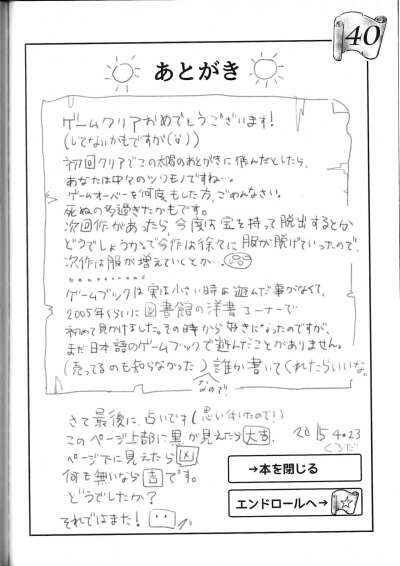 40
あとがき
ゲームクリアおめでとうございます!
(してないかもですが(汗))
初回クリアでこの太陽のあとがきに進んだとしたら、
あなたは中々のツワモノですね…。
ゲームオーバーを何度もした方、ごめんなさい。
死ぬの多過ぎたかもです。
次回作があったら、今度は宝を持って脱出するとか
どうでしょうか。で今作は徐々に服が脱げていったので、
次作は服が増えていくとか…
ゲームブックは実は小さい時は遊んだ事がなくて、
2005年くらいに図書館の洋書コーナーで
初めて見かけました。その時から好きになったのですが、
まだ日本語のゲームブックで遊んだことがありません。
(売ってるのも知らなかったなので)誰か書いてくれたらいいな。
さて最後に、占いです(思い付いたので!)
このページ上部に黒が見えたら大吉、
ページ下に見えたら凶
何も無いなら吉です。
どうでしたか?
それではまた!
2015 4.23
くろだ
→本を閉じる
エンドロールへ→